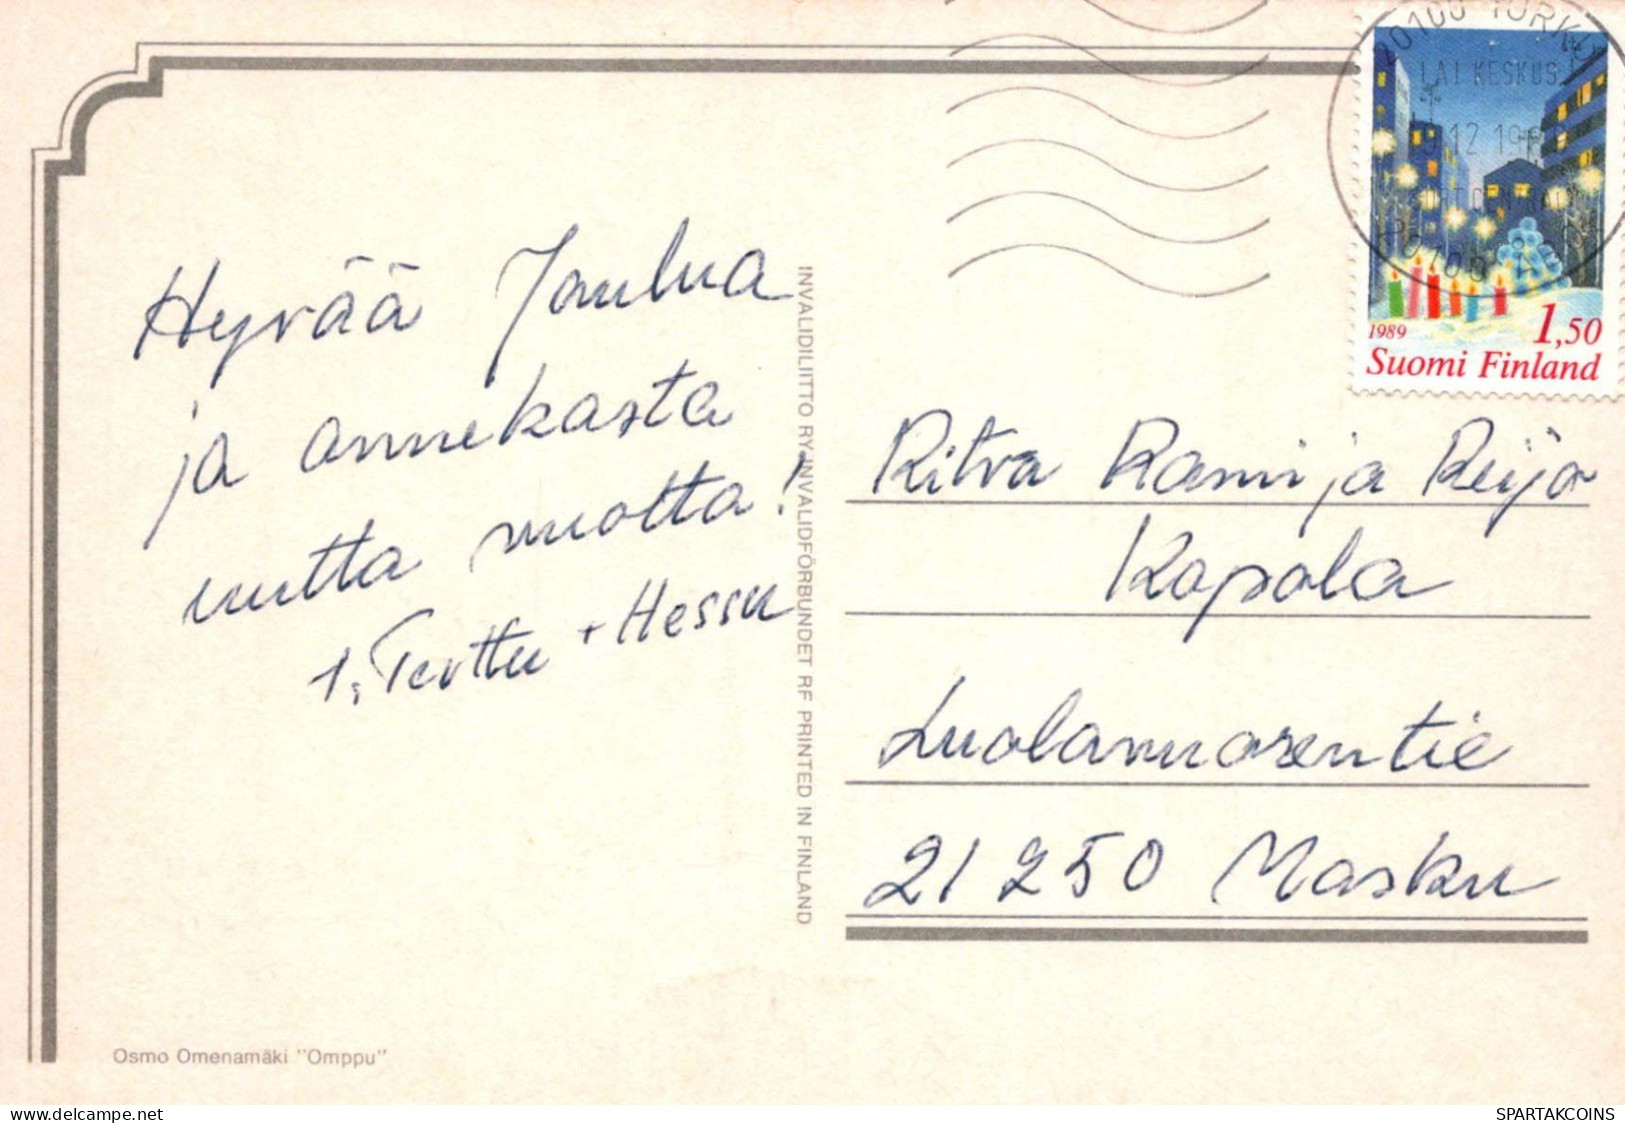 Hyvää Joulua
ja onnekasta
uutta vuotta!
T. Terttu + Hessu
INVALIDILIITTO RY INVALIDFÖRBUNDET RF PRINTED IN FINLAND
Osmo Omenamäki "Omppu"
20100 TURKU
LAJ KESKUS
12 19
1989
1,50
Suomi Finland
Ritva Rami ja Reijo
Kopola
Luolavuorentie
21250 Masku
delcampe.net
SPARTAKCOINS